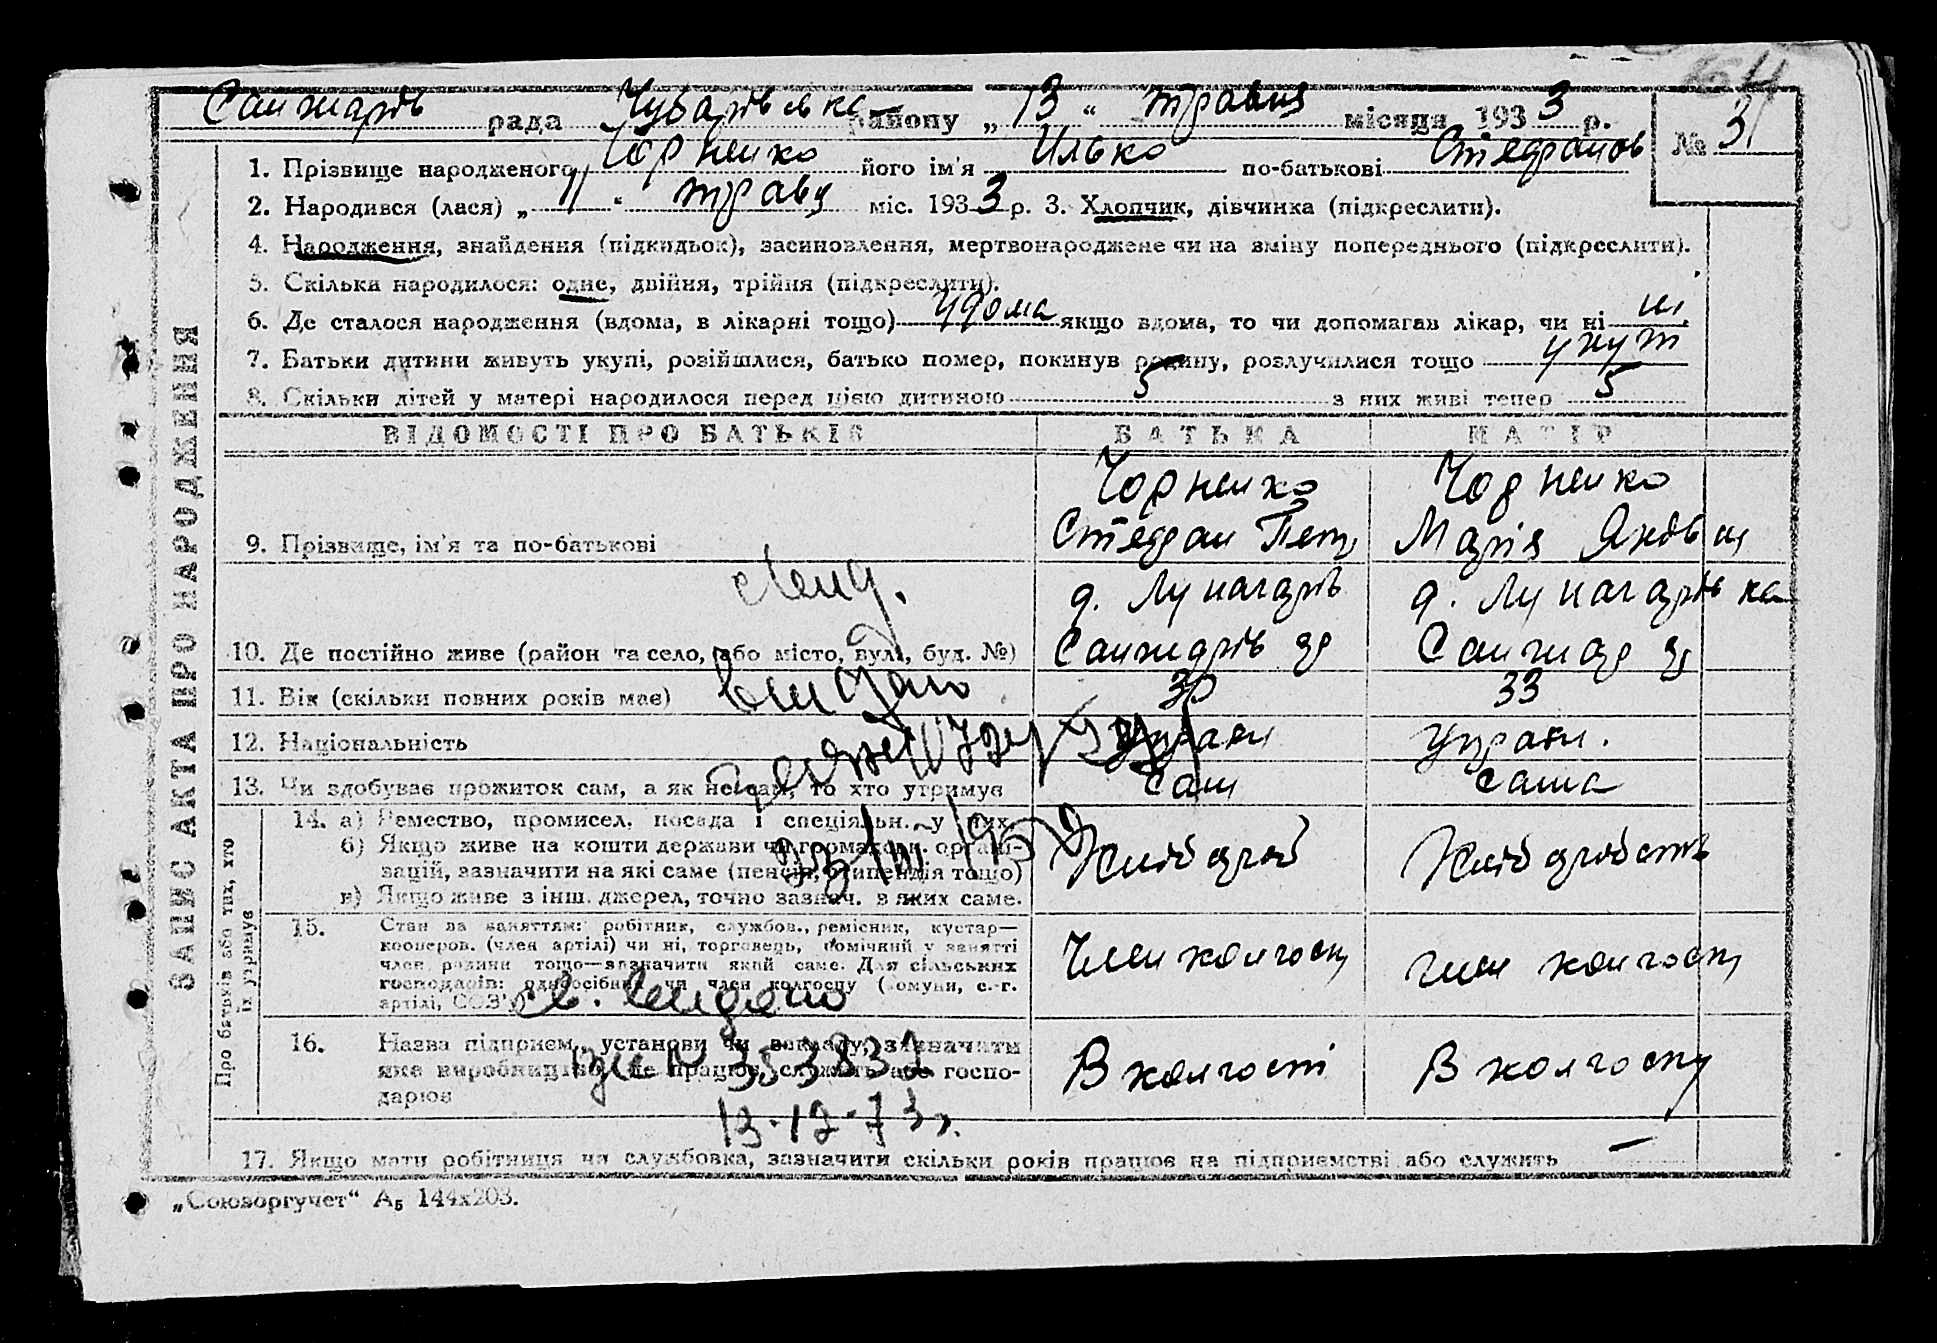 64
Санжарів рада Чубарівська району „13“ травня місяця 1933 р. № 31
1. Прізвище народженого Чорненко його ім'я Илько по-батькові Стефанов
2. Народився (лася) „11“ травня міс. 1933 р. 3. Хлопчик, дівчинка (підкреслити).
4. Народження, знайдення (підкидьок), засиновлення, мертвонароджене чи на зміну попереднього (підкреслити).
5. Скільки народилося: одне, двійня, трійня (підкреслити).
6. Де сталося народження (вдома, в лікарні тощо) удома якщо вдома, то чи допомагав лікар, чи ні ні
7. Батьки дитини живуть укупі, розійшлися, батько помер, покинув родину, розлучилися тощо укуп
8. Скільки дітей у матері народилося перед цією дитиною 5 з них живі тепер 5
ЗАПИС АКТА ПРО НАРОДЖЕННЯ
ВІДОМОСТІ ПРО БАТЬКІВ БАТЬКА МАТІР
9. Прізвище, ім'я та по-батькові
Чорненко Чорненко
Стефан Петр Марія Яковл
10. Де постійно живе (район та село, або місто, вул., буд. №)
д. Луначарів д. Луначарівка
Санжарів Санжар
11. Вік (скільки повних років має) 30 33
12. Національність Украін Украін.
13. Чи здобуває прожиток сам, а як не сам, то хто утримує сам сама
Про батьків або тих, хто їх утримує
14. а) Ремество, промисел, посада і спеціяльн. у них.
б) Якщо живе на кошти держави чи громадськ. органі-
зацій, зазначити на які саме (пенсія, стипендія тощо)
в) Якщо живе з інш. джерел, точно зазнач. з яких саме.
Хлібороб Хліборобств
15. Стан за заняттям: робітник, службов., ремісник, кустар—
кооперов. (член артілі) чи ні, торговець, помічний у занятті
член родини тощо—зазначити який саме. Для сільських
господарів: одноосібник чи член колгоспу (комуни, с.-г.
артілі, СОЗ'у)
Член колгоспу член колгоспу
16. Назва підприєм., установи чи закладу, зазначити
яке виробництво, де працює, служить або госпо-
дарює
В колгоспі В колгоспу
17. Якщо мати робітниця чи службовка, зазначити скільки років працює на підприємстві або служить —
св. видано
№ 353832
13-12-73г.
„Союзоргучет“ А5 144х203.